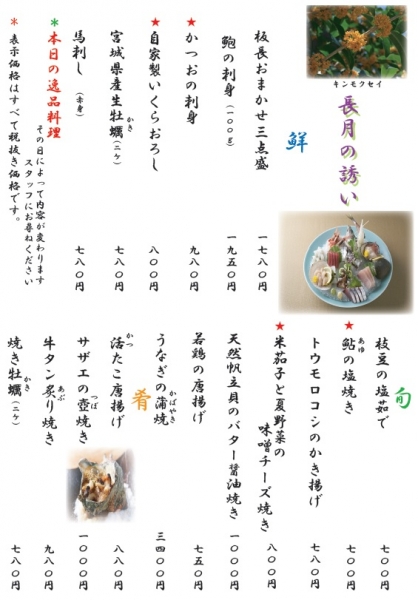 キンモクセイ
長月の誘い
鮮
板長おまかせ三点盛 一七八〇円
鮑の刺身（一〇〇g） 一九五〇円
★かつおの刺身 九八〇円
★自家製いくらおろし 八〇〇円
宮城県産生牡蠣（二ケ） かき 七八〇円
馬刺し（赤身） 七八〇円
＊本日の逸品料理
その日によって内容が変わります
スタッフにお尋ねください
＊表示価格はすべて税抜き価格です。
旬
枝豆の塩茹で 七〇〇円
★鮎の塩焼き あゆ 七〇〇円
トウモロコシのかき揚げ 七八〇円
★米茄子と夏野菜の
味噌チーズ焼き 八〇〇円
天然帆立貝のバター醤油焼き 一〇〇〇円
若鶏の唐揚げ 七五〇円
うなぎの蒲焼 かばやき 三四〇〇円
肴
活たこ唐揚げ かつ 八八〇円
サザエの壺焼き つぼ 一〇〇〇円
牛タン炙り焼き あぶ 九八〇円
焼き牡蠣（二ケ） かき 七八〇円